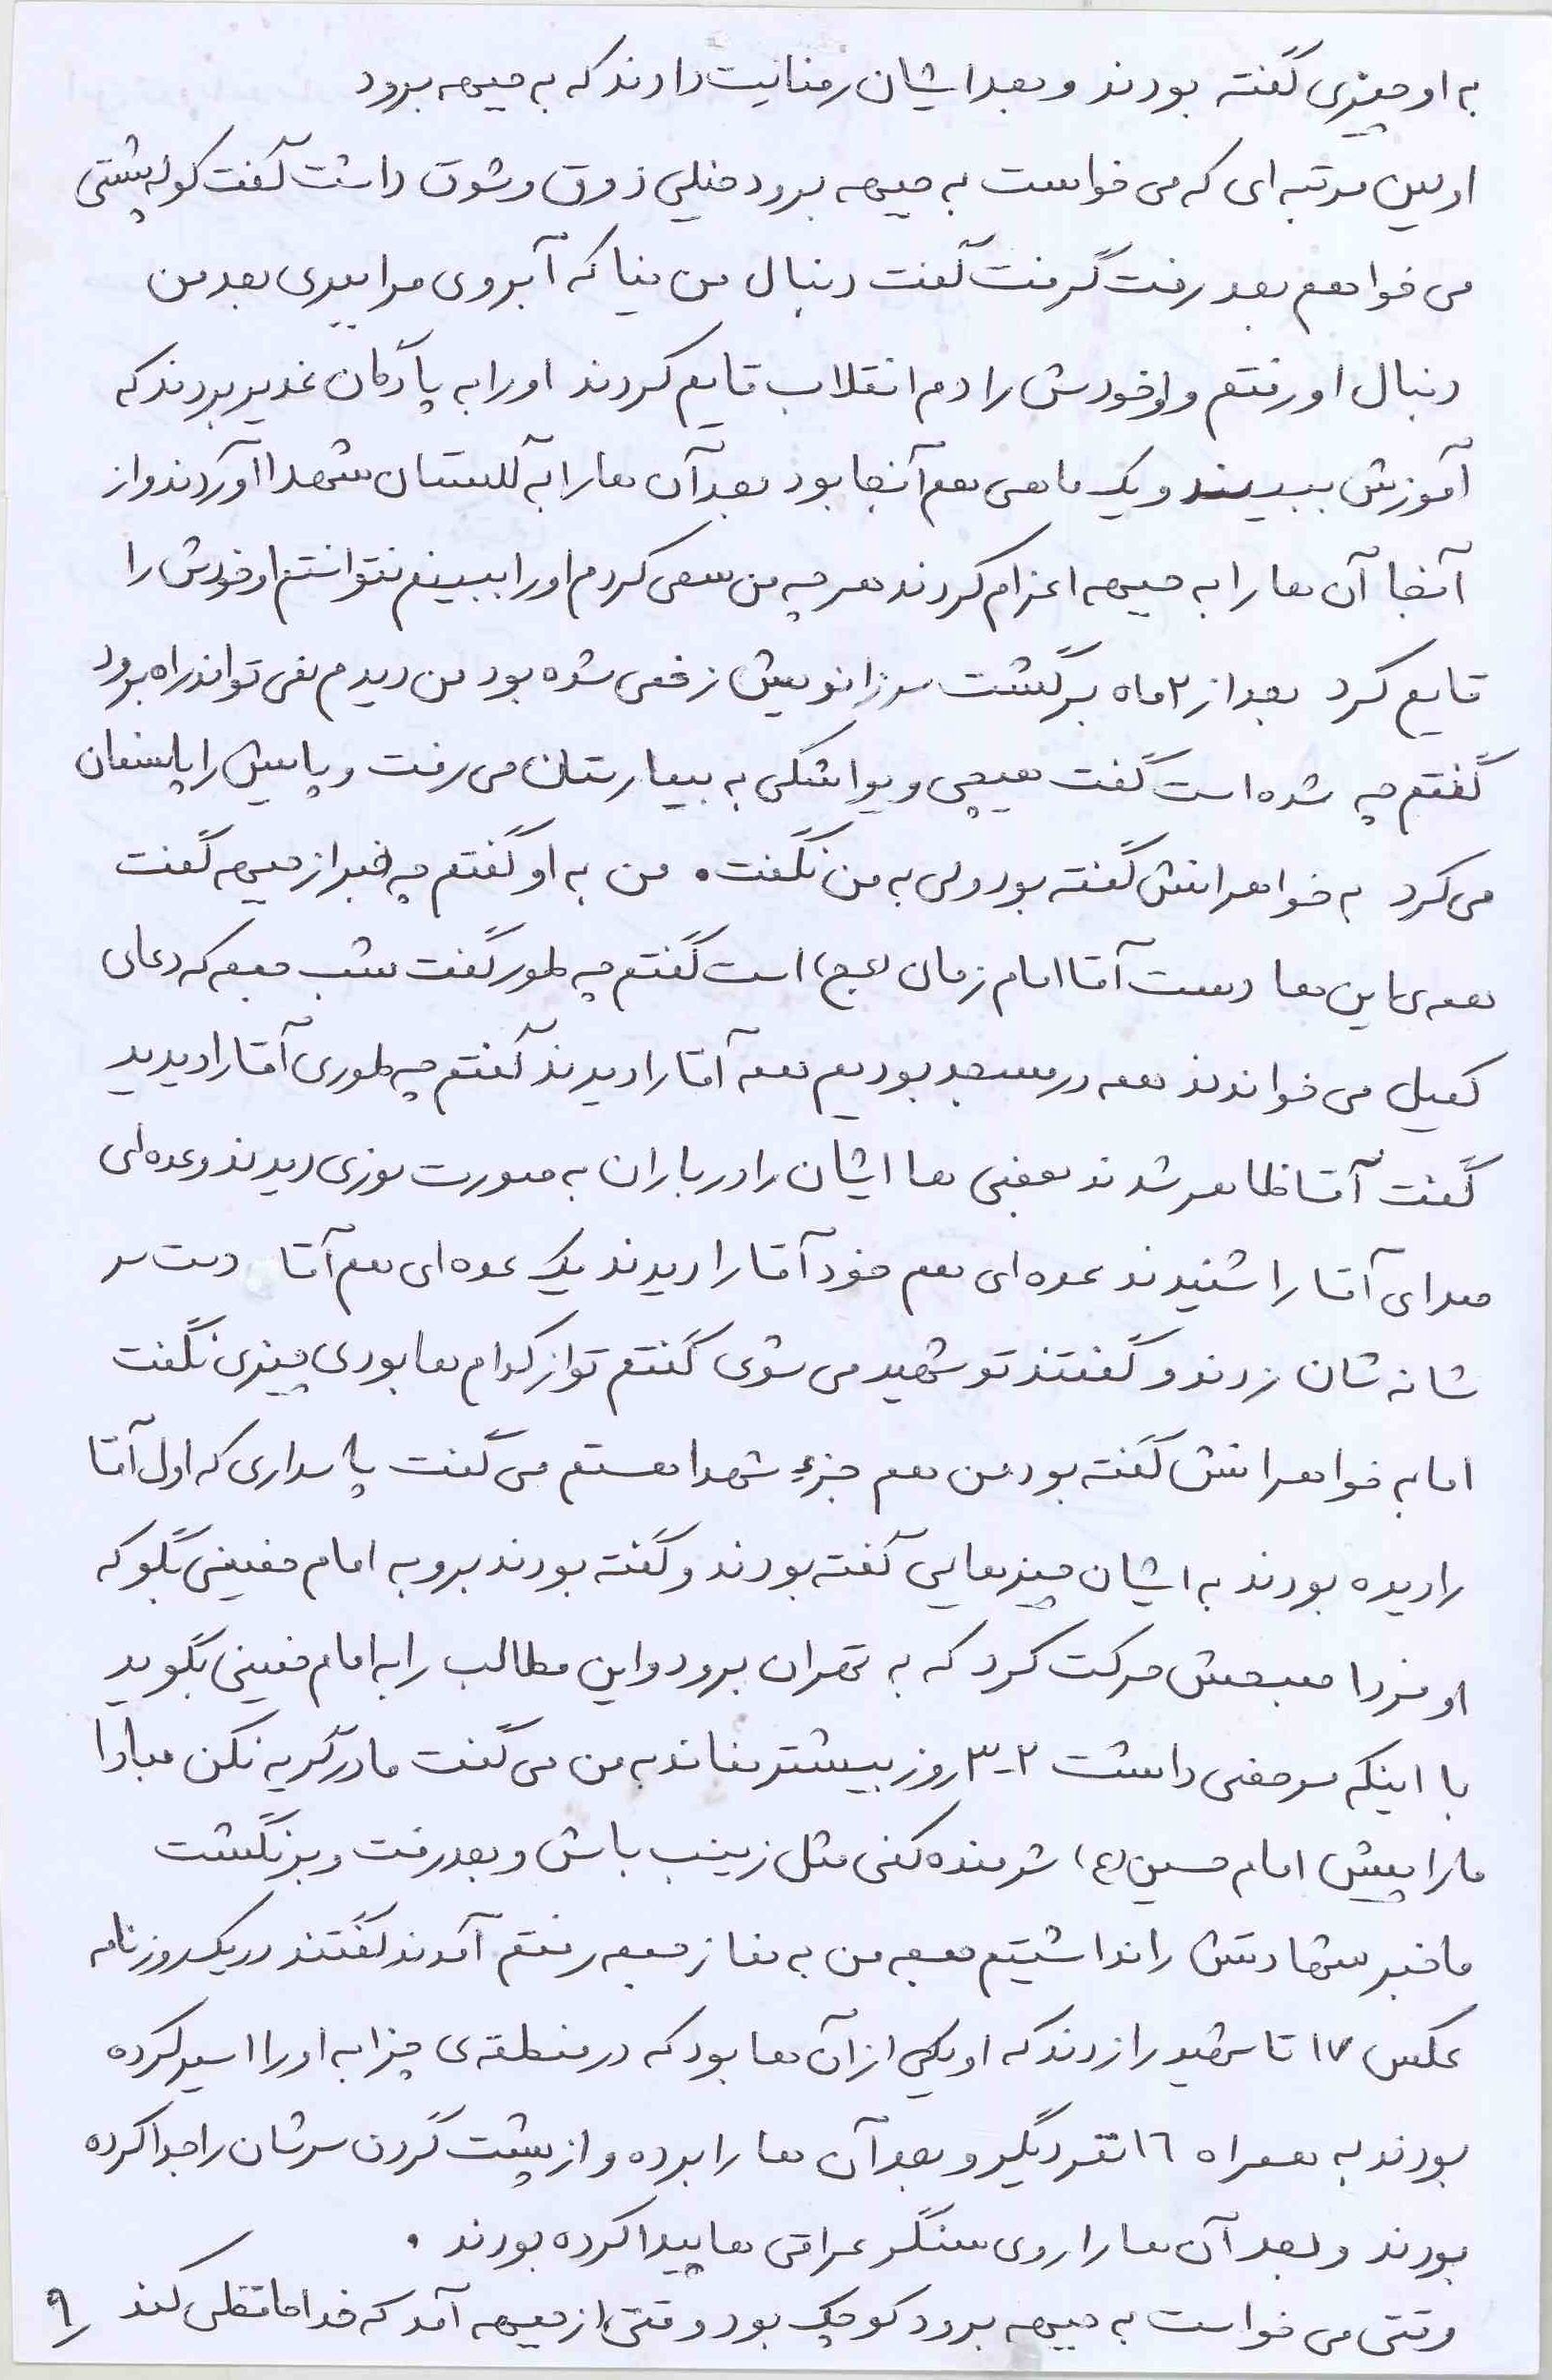 به او چیزی گفته بودند و بعد ایشان رضایت دادند که به جبهه برود
اولین مرتبه ای که می خواست به جبهه برود خیلی ذوق و شوق داشت گفت کوله پشتی
می خواهم بعد رفت گرفت گفت دنبال من نیا که آبروی مرا میبری بعد من
دنبال او رفتم و او خودش را دم انقلاب قایم کردند او را به پادگان غدیر بردند که
آموزش ببیند و یک ماهی هم آنجا بود بعد آن ها را به گلستان شهدا آوردند و از
آنجا آن ها را به جبهه اعزام کردند هر چه من سعی کردم او را ببینم نتوانستم او خودش را
قایم کرد بعد از ۲ ماه برگشت سر زانویش زخمی شده بود من دیدم نمی تواند راه برود
گفتم چه شده است گفت هیچی و یواشکی به بیمارستان می رفت و پایش را پانسمان
می کرد به خواهرانش گفته بود ولی به من نگفت. من به او گفتم چه خبر از جبهه گفت
همه ی این ها دست آقا امام زمان (عج) است گفتم چه طور گفت شب جمعه که دعای
کمیل می خواندند همه در مسجد بودیم همه آقا را دیدند گفتم چه طوری آقا را دیدید
گفت آقا ظاهر شدند بعضی ها ایشان را در باران به صورت نوری دیدند و عده ای
صدای آقا را شنیدند عده ای هم خود آقا را دیدند یک عده ای هم آقا دست سر
شانه شان زدند و گفتند تو شهید می شوی گفتم تو از کدام ها بودی چیزی نگفت
اما به خواهرانش گفته بود من هم جزءِ شهدا هستم می گفت پاسداری که اول آقا
را دیده بودند به ایشان چیزهایی گفته بودند و گفته بودند برو به امام خمینی بگو که
او فردا صبحش حرکت کرد که به تهران برود و این مطالب را به امام خمینی بگوید
با اینکه مرخصی داشت ۲-۳ روز بیشتر نماند به من می گفت مادر گریه نکن مبادا
ما را پیش امام حسین (ع) شرمنده کنی مثل زینب باش و بعد رفت و برنگشت
ما خبر شهادتش را نداشتیم جمعه من به نماز جمعه رفتم آمدند گفتند در یک روزنامه
عکس ۱۷ تا شهید را زدند که او یکی از آن ها بود که در منطقه ی چزابه او را اسیر کرده
بودند به همراه ۱۶ نفر دیگر و بعد آن ها را برده و از پشت گردن سرشان را جدا کرده
بودند و بعد آن ها را روی سنگر عراقی ها پیدا کرده بودند.
وقتی می خواست به جبهه برود کوچک بود وقتی از جبهه آمد که خداحافظی کند
۹